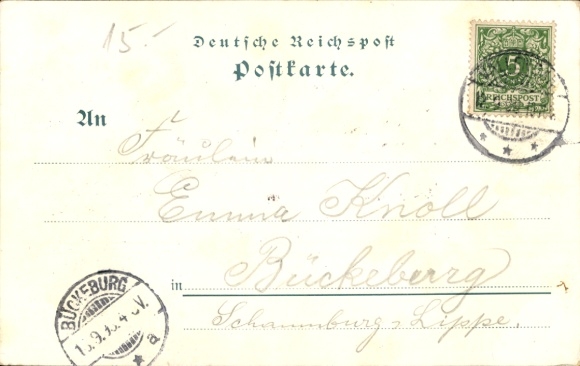 15.-
Deutsche Reichspost
Postkarte.
5
REICHSPOST
An
Fräulein
Emma Knoll
in Bückeberrg
Schaumburg-Lippe.
BÜCKEBURG
a